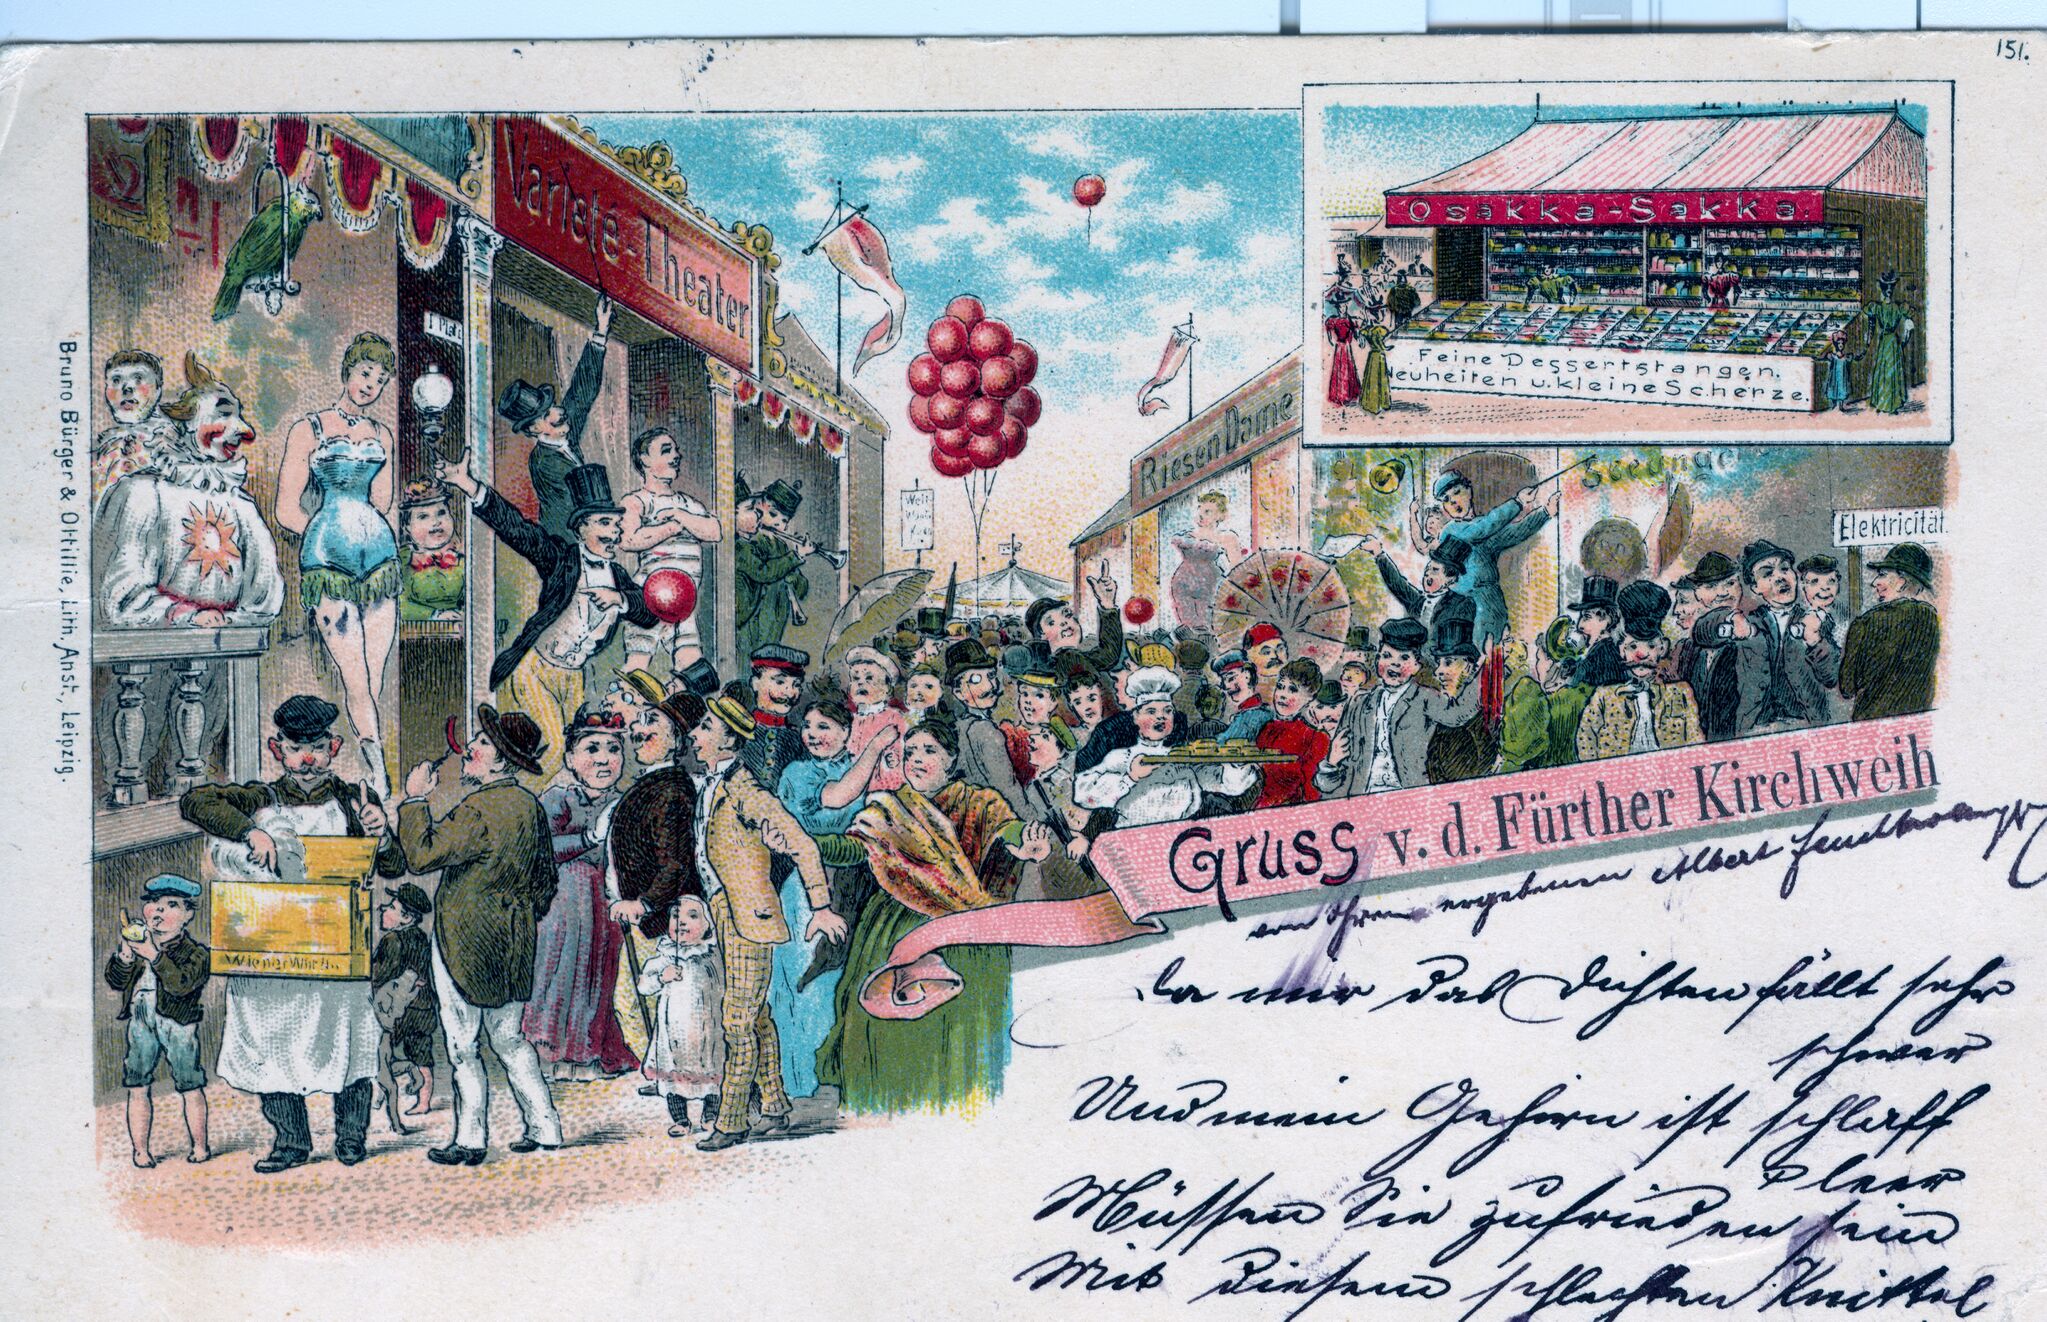 151.
Variete-Theater
I Platz
Osakka-Sakka.
Feine Dessertstangen.
Neuheiten u. kleine Scherze.
Riesen Dame
Elektricität.
Wiener Würst
Bruno Bürger & Ottillie, Lith. Anst., Leipzig.
Gruss v. d. Fürther Kirchweih
von Ihrem ergebenen Albert
Da mir das Dichten fällt sehr
schwer
Und mein Gehirn ist schlaff
& leer
Müssen Sie zufrieden sein
Mit diesem schlechten Knittel